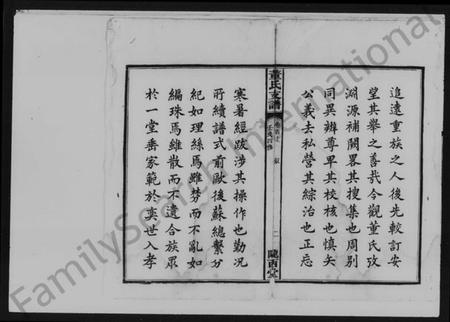 追遠重族之人後先較訂安
望其舉之善哉今觀董氏攷
淵源補闕畧其搜集也周別
同異辨尊卑其校核也慎矢
公義去私營其綜治也正忘
董氏支譜
卷首之
叙
二
隴西堂
寒暑經跋涉其操作也勤况
所續譜式前歐後蘇總繫分
紀如理絲焉雖棼而不亂如
編珠焉維散而不遺合族眾
於一堂垂家範於奕世入孝
FamilySearch International